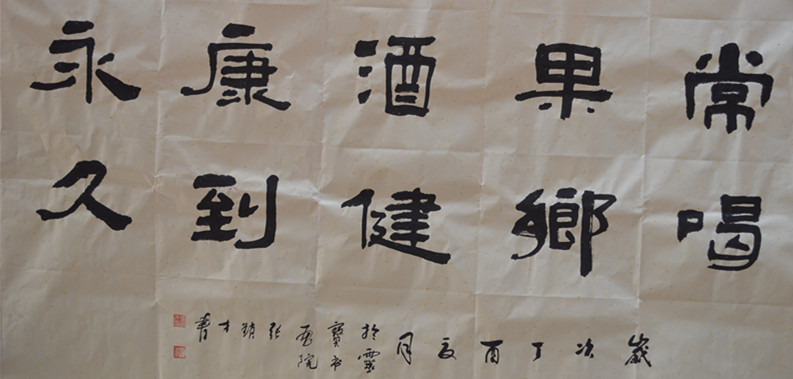 常喝
果鄉
酒健
康到
永久
歲次丁酉夏月
於靈
寶书
画院
张才書